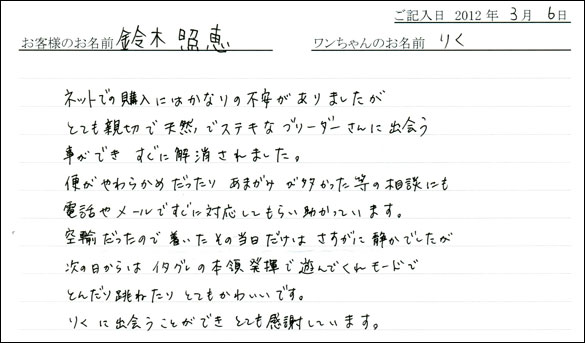 ご記入日 2012年 3月 6日
お客様のお名前 鈴木 照恵 ワンちゃんのお名前 りく
ネットでの購入にはかなりの不安がありましたが
とても親切で天然!でステキなブリーダーさんに出会う
事ができ すぐに解消されました。
便がやわらかめだったり あまがみが多かった等の相談にも
電話やメールですぐに対応してもらい助かっています。
空輸だったので着いたその当日だけはさすがに静かでしたが
次の日からは イタグレの本領発揮で遊んでくれモードで
とんだり跳ねたり とてもかわいいです。
りくに出会うことができ とても感謝しています。